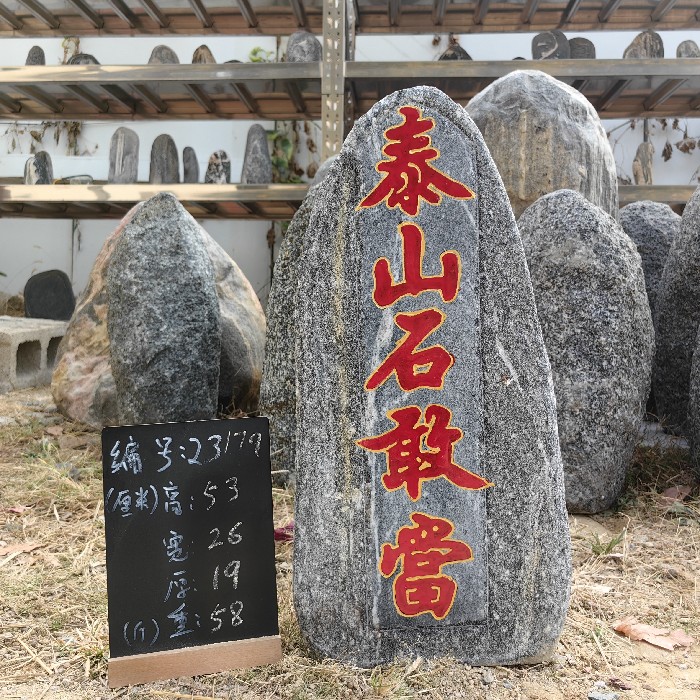 泰山石敢當
编号:23179
(厘米)高:53
宽:26
厚:19
(斤)重:58